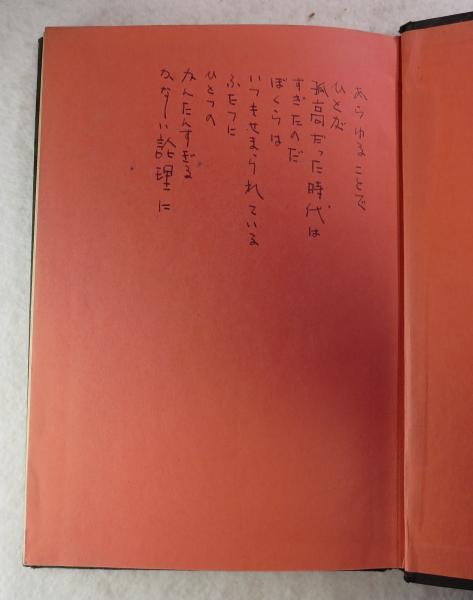 あらゆることで
ひとが
孤高だった時代は
すぎたのだ
ぼくらは
いつもせまられている
ふたつに
ひとつの
かんたんすぎる
かなしい論理に